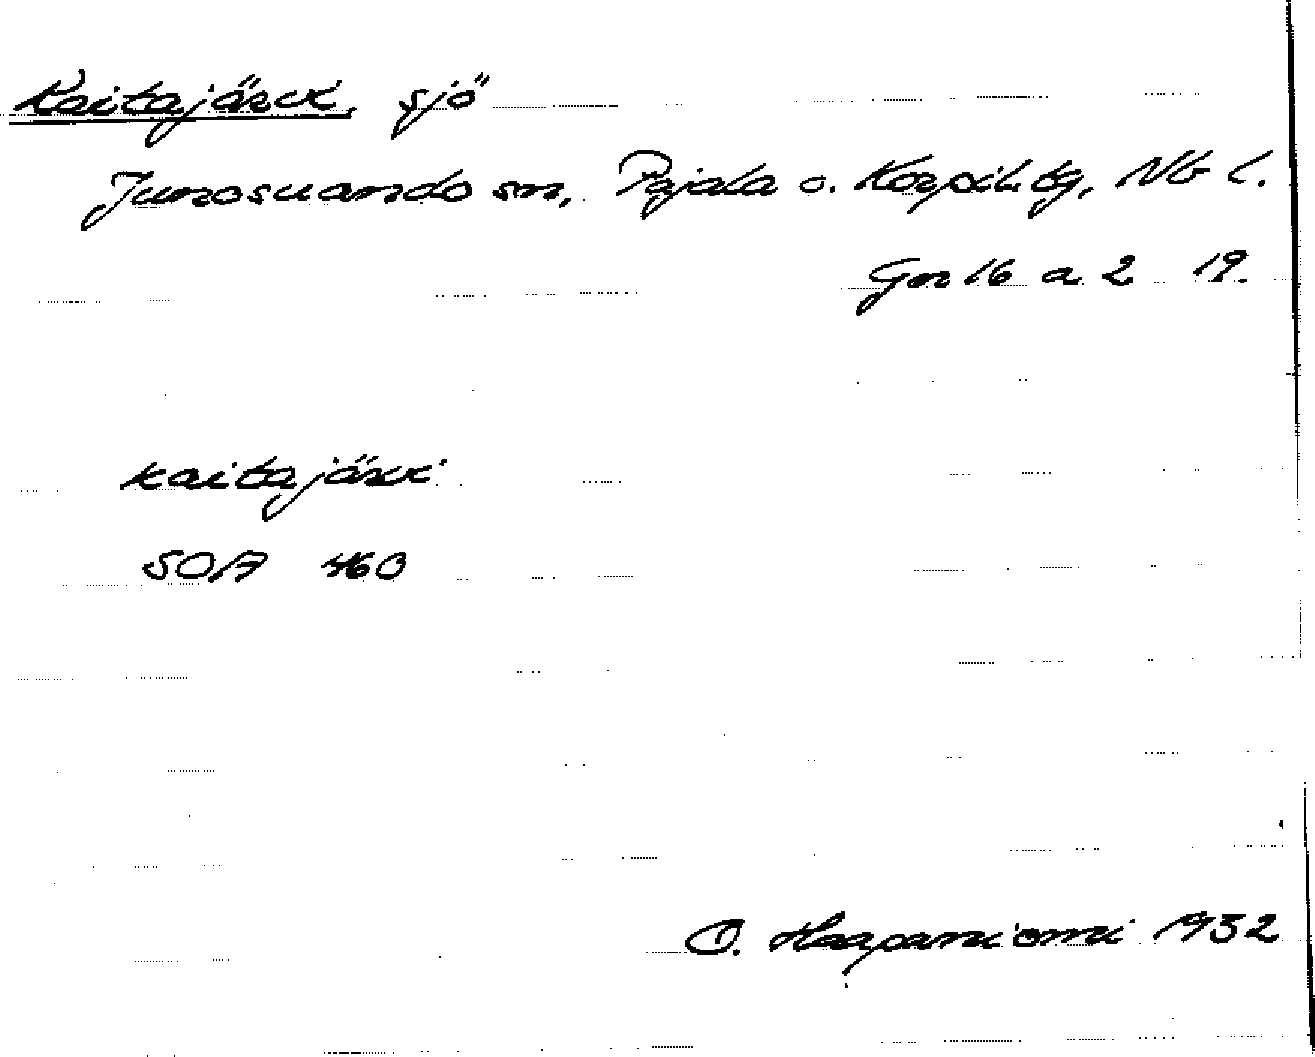 Kaitajärvi, sjö
Junosuando sn, Pajala o. Korpil. tg, Nb l.
Gn 16 a 2 19.
kaitajärvi
SOA 460
O. Haapaniemi 1932